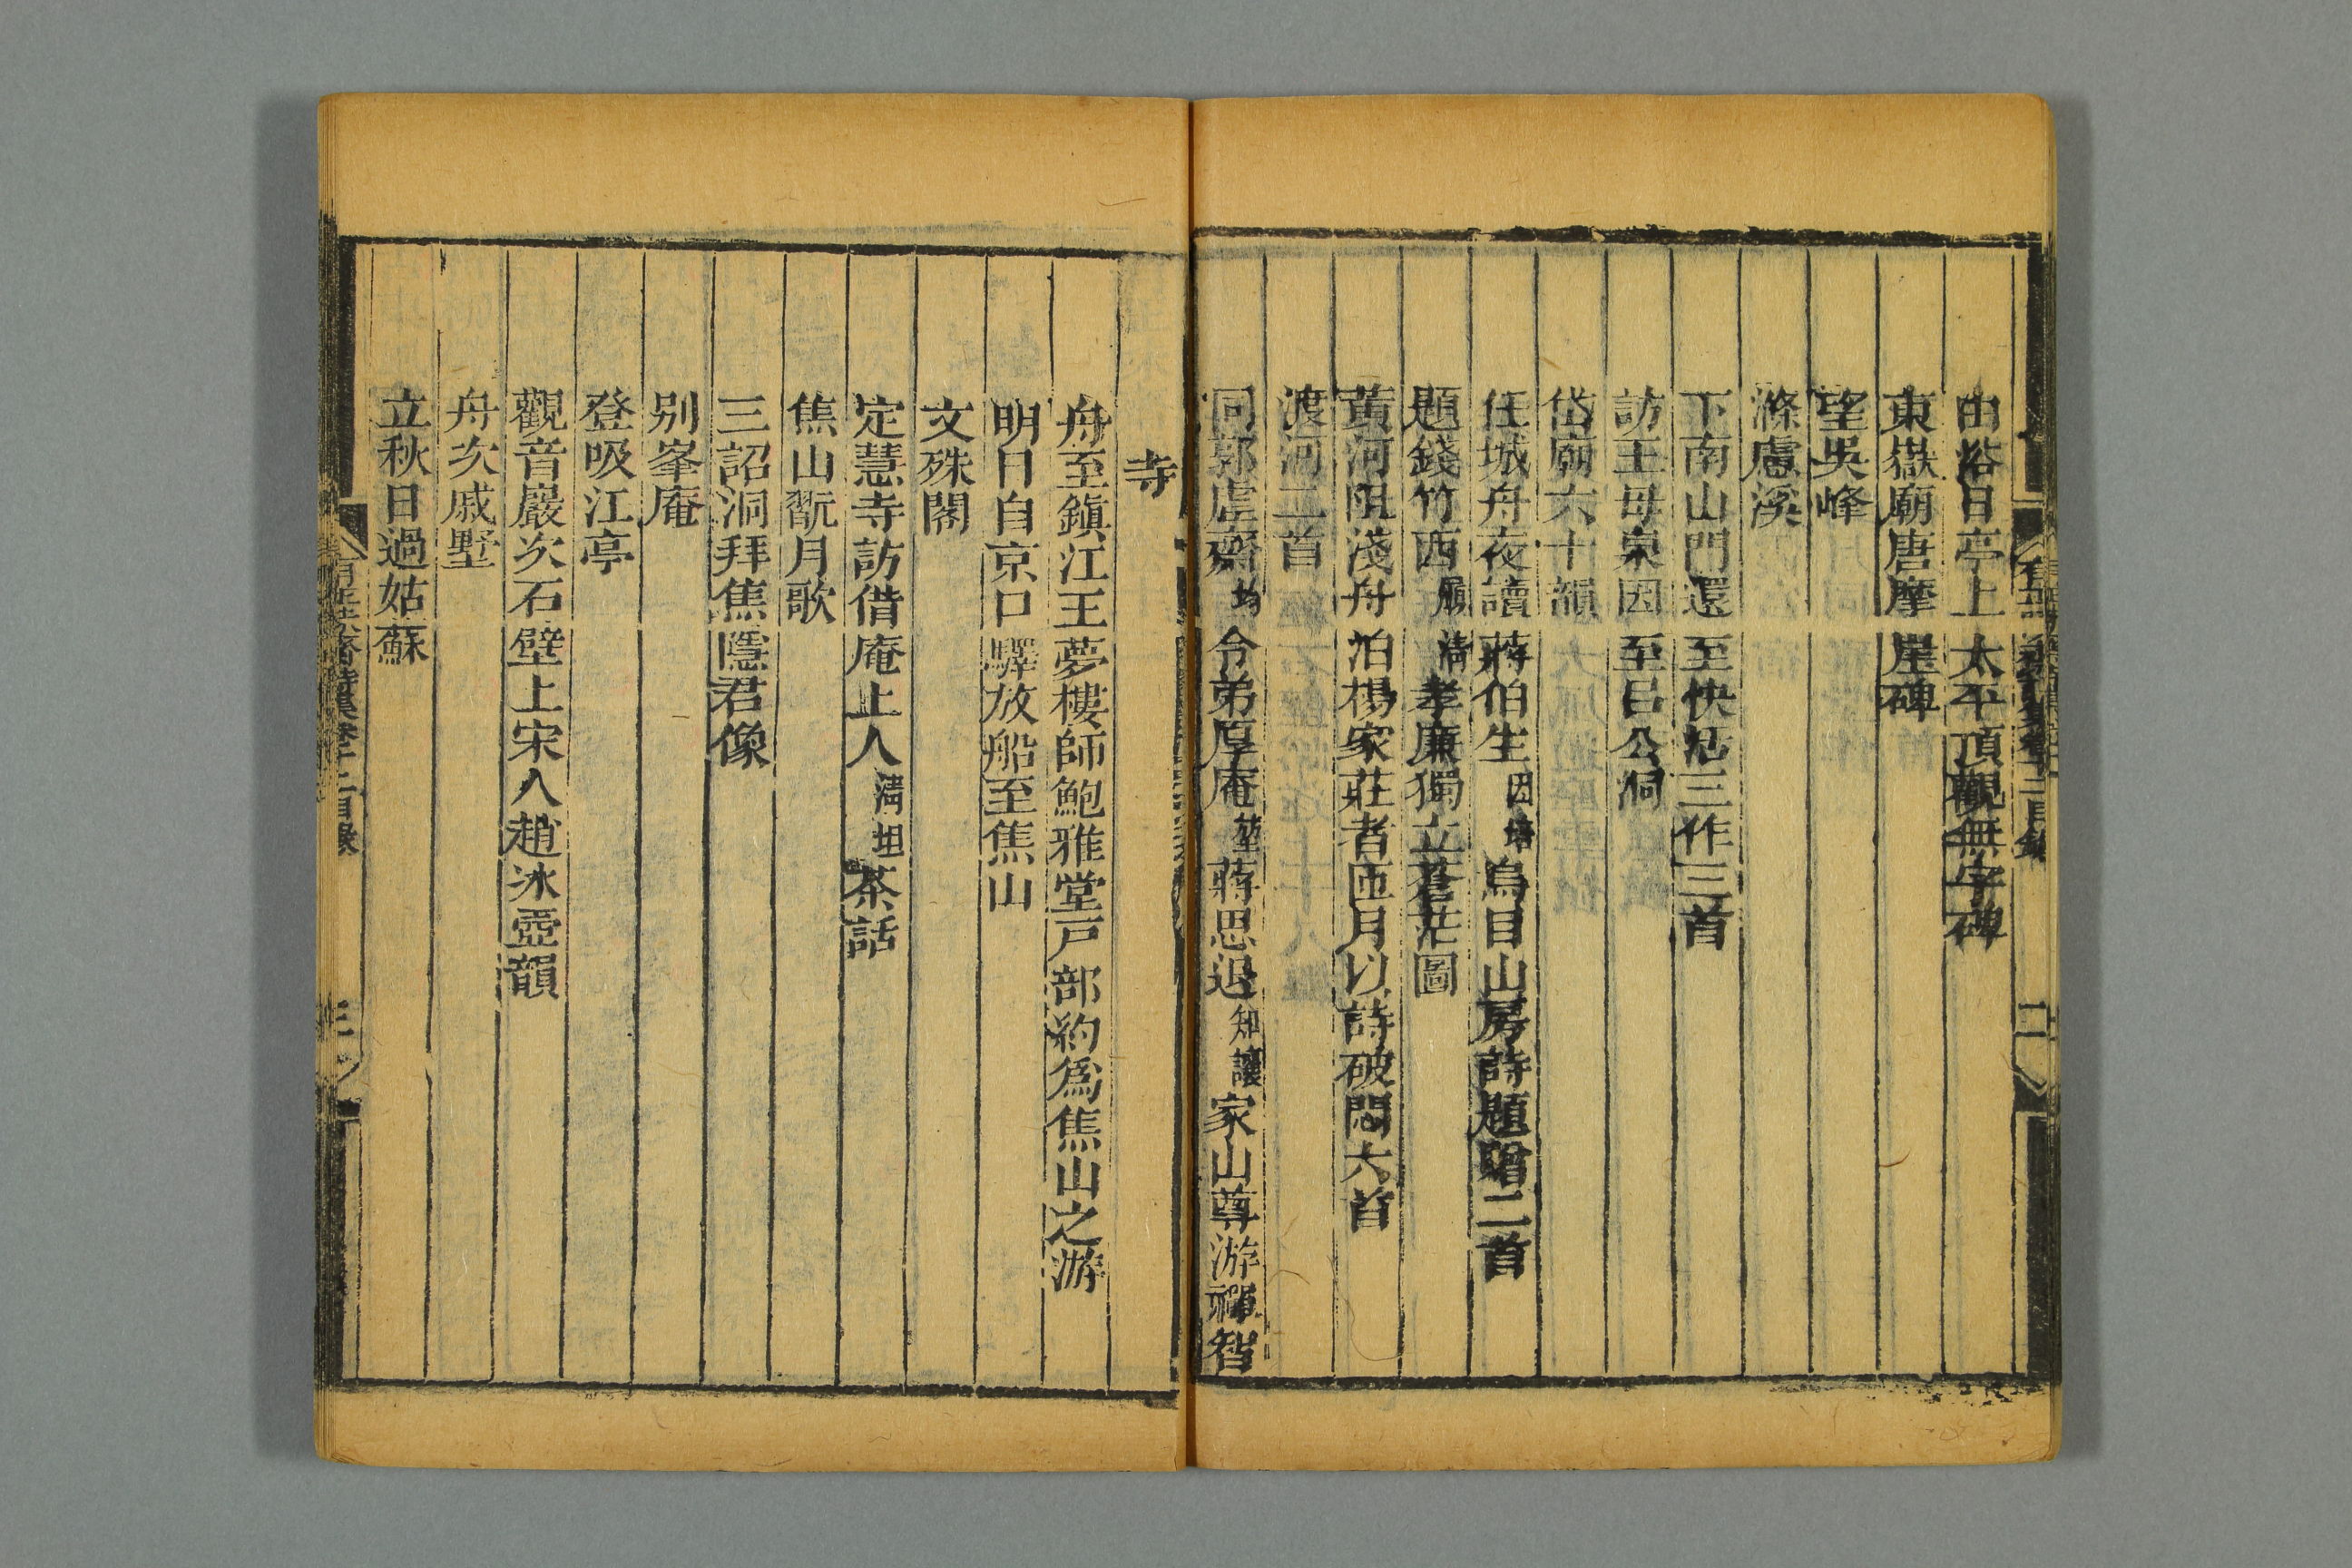 由浴日亭上太平頂觀無字碑
東嶽廟唐摩崖碑
望吳峰
滌慮溪
下南山門還至快活三作三首
訪王母泉因至呂公洞
岱廟六十韻
任城舟夜讀蔣伯生因培烏目山房詩題贈二首
題錢竹西履清孝廉獨立蒼茫圖
黃河阻淺舟泊楊家莊者匝月以詩破悶六首
渡河二首
同郭虛齋均令弟厚庵堃蔣思退知讓家山尊游禪智
寺
舟至鎮江王夢樓師鮑雅堂戶部約爲焦山之游
明日自京口驛放船至焦山
文殊閣
定慧寺訪借庵上人清坦茶話
焦山翫月歌
三詔洞拜焦隱君像
别峯庵
登吸江亭
觀音巖次石壁上宋人趙冰壺韻
舟次戚墅
立秋日過姑蘇